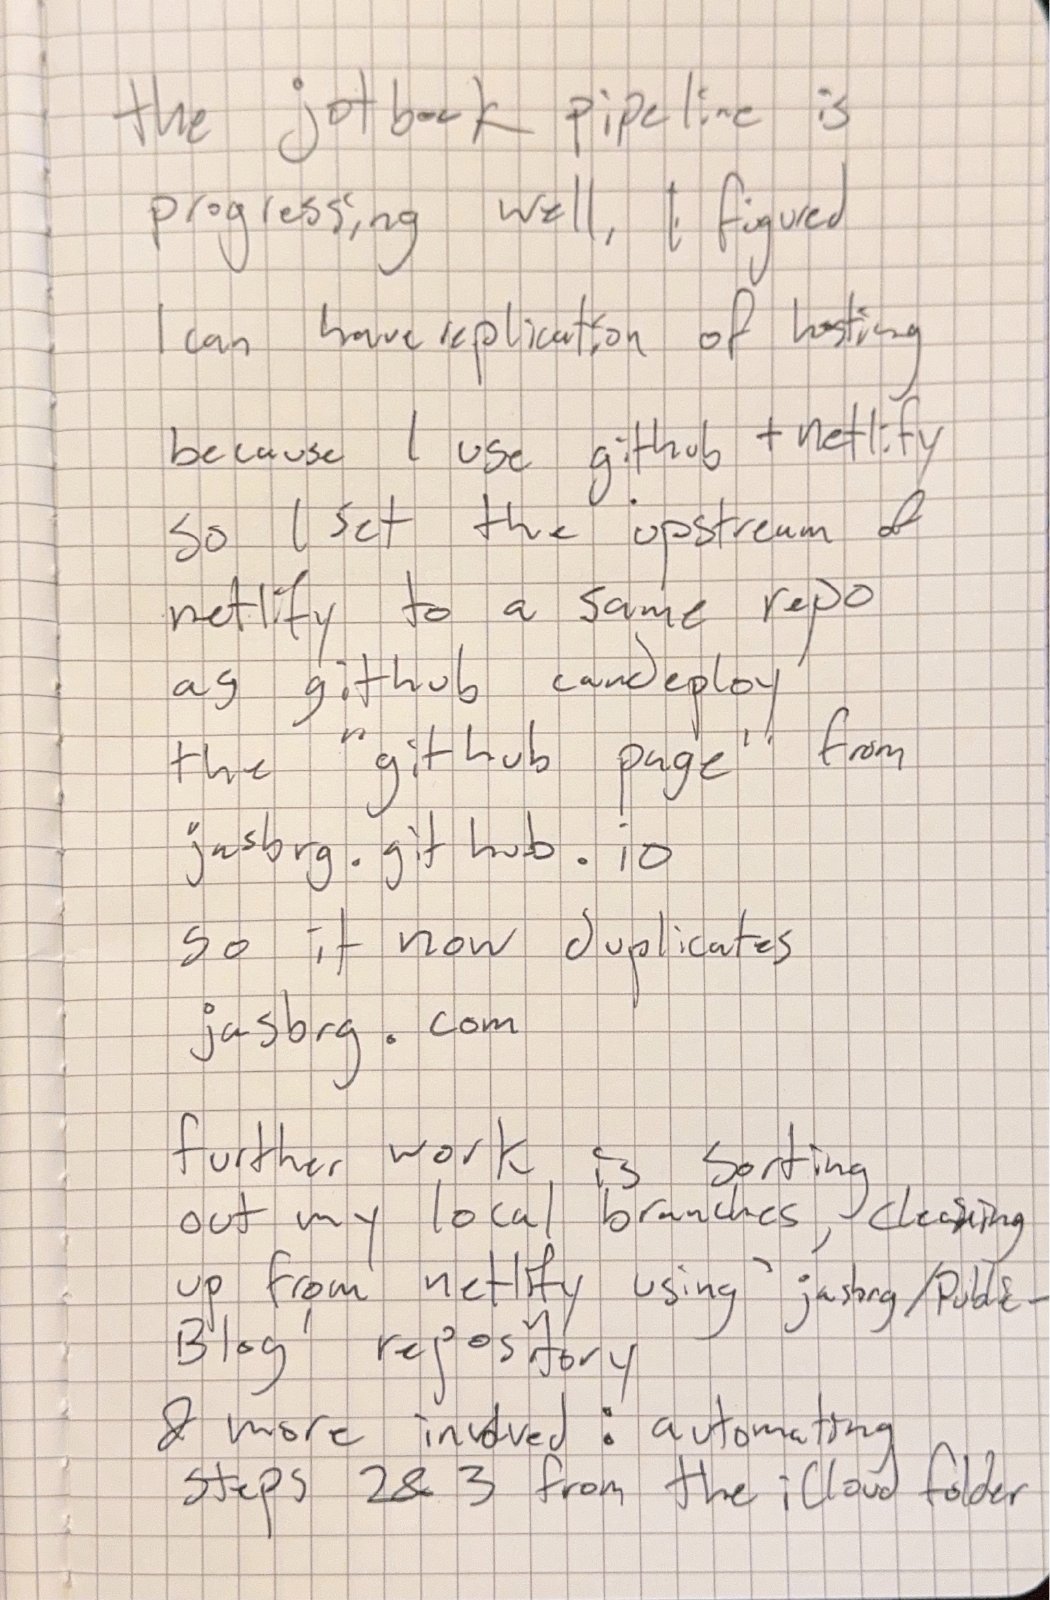 the jotbook pipeline is
progressing well, I figured
I can have replication of hosting
because I use github + netlify
so I set the upstream of
netlify to a same repo
as github can deploy
the "github page" from
jasbrg.github.io
so it now duplicates
jasbrg.com
further work is sorting
out my local branches, cleaning
up from netlify using 'jasbrg/Public-
Blog' repository
& more involved: automating
steps 2 & 3 from the iCloud folder